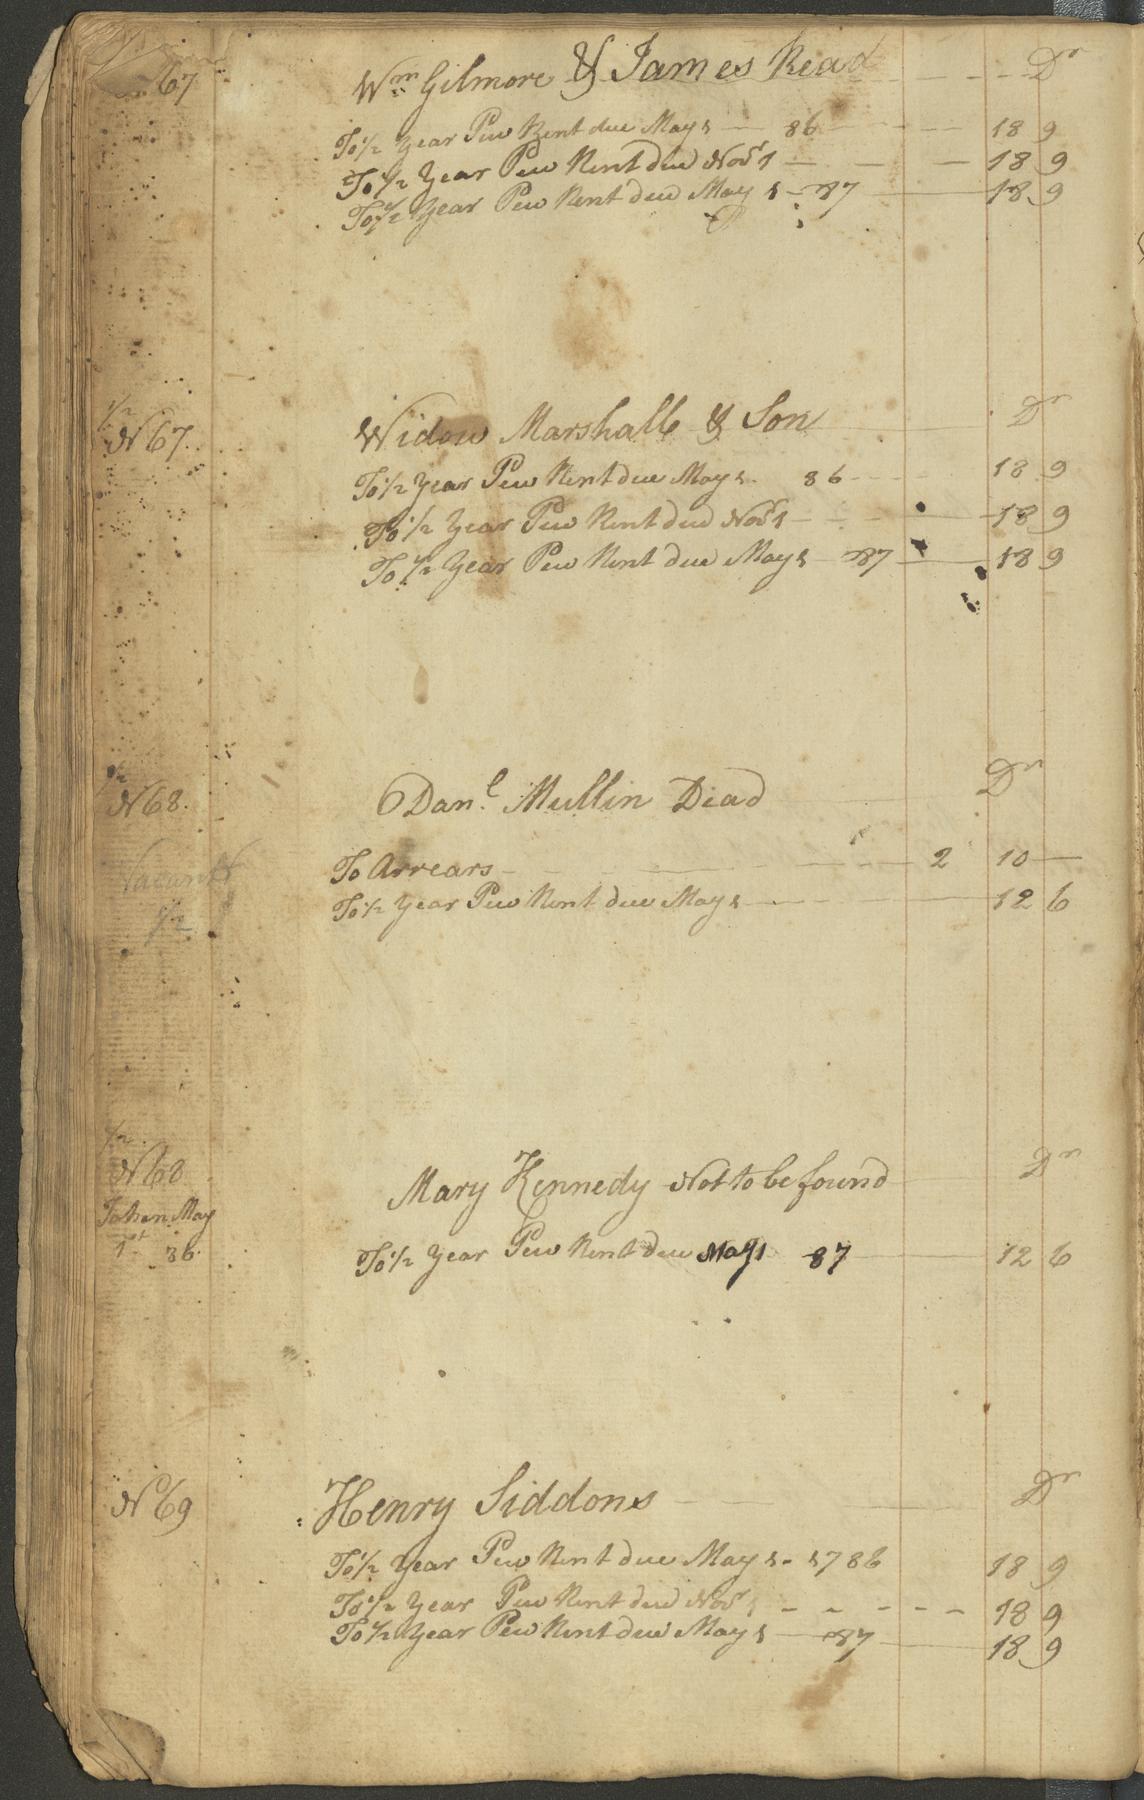 67 Wm Gilmore & James Read Dr
To 1/2 Year Pew Rent due May 1 86 18 9
To 1/2 Year Pew Rent due Novr 1 18 9
To 1/2 Year Pew Rent due May 1 87 18 9
1/2
N 67. Widow Marshall & Son Dr
To 1/2 Year Pew Rent due May 1. 86 18 9
To 1/2 Year Pew Rent due Novr 1 18 9
To 1/2 Year Pew Rent due May 1 87 18 9
1/2
N 68. Danl. Mullin Diad Dr
To Arrears 2 10
Vacant
To 1/2 Year Pew Rent due May 1 12 6
1/2
1/2
N 68 Mary Kennedy Not to be found Dr
Taken May
1st 86. To 1/2 Year Pew Rent due May 1 87 12 6
N 69 Henry Siddons Dr
To 1/2 Year Pew Rent due May 1 - 1786 18 9
To 1/2 Year Pew Rent due Novr 1 18 9
To 1/2 Year Pew Rent due May 1 87 18 9